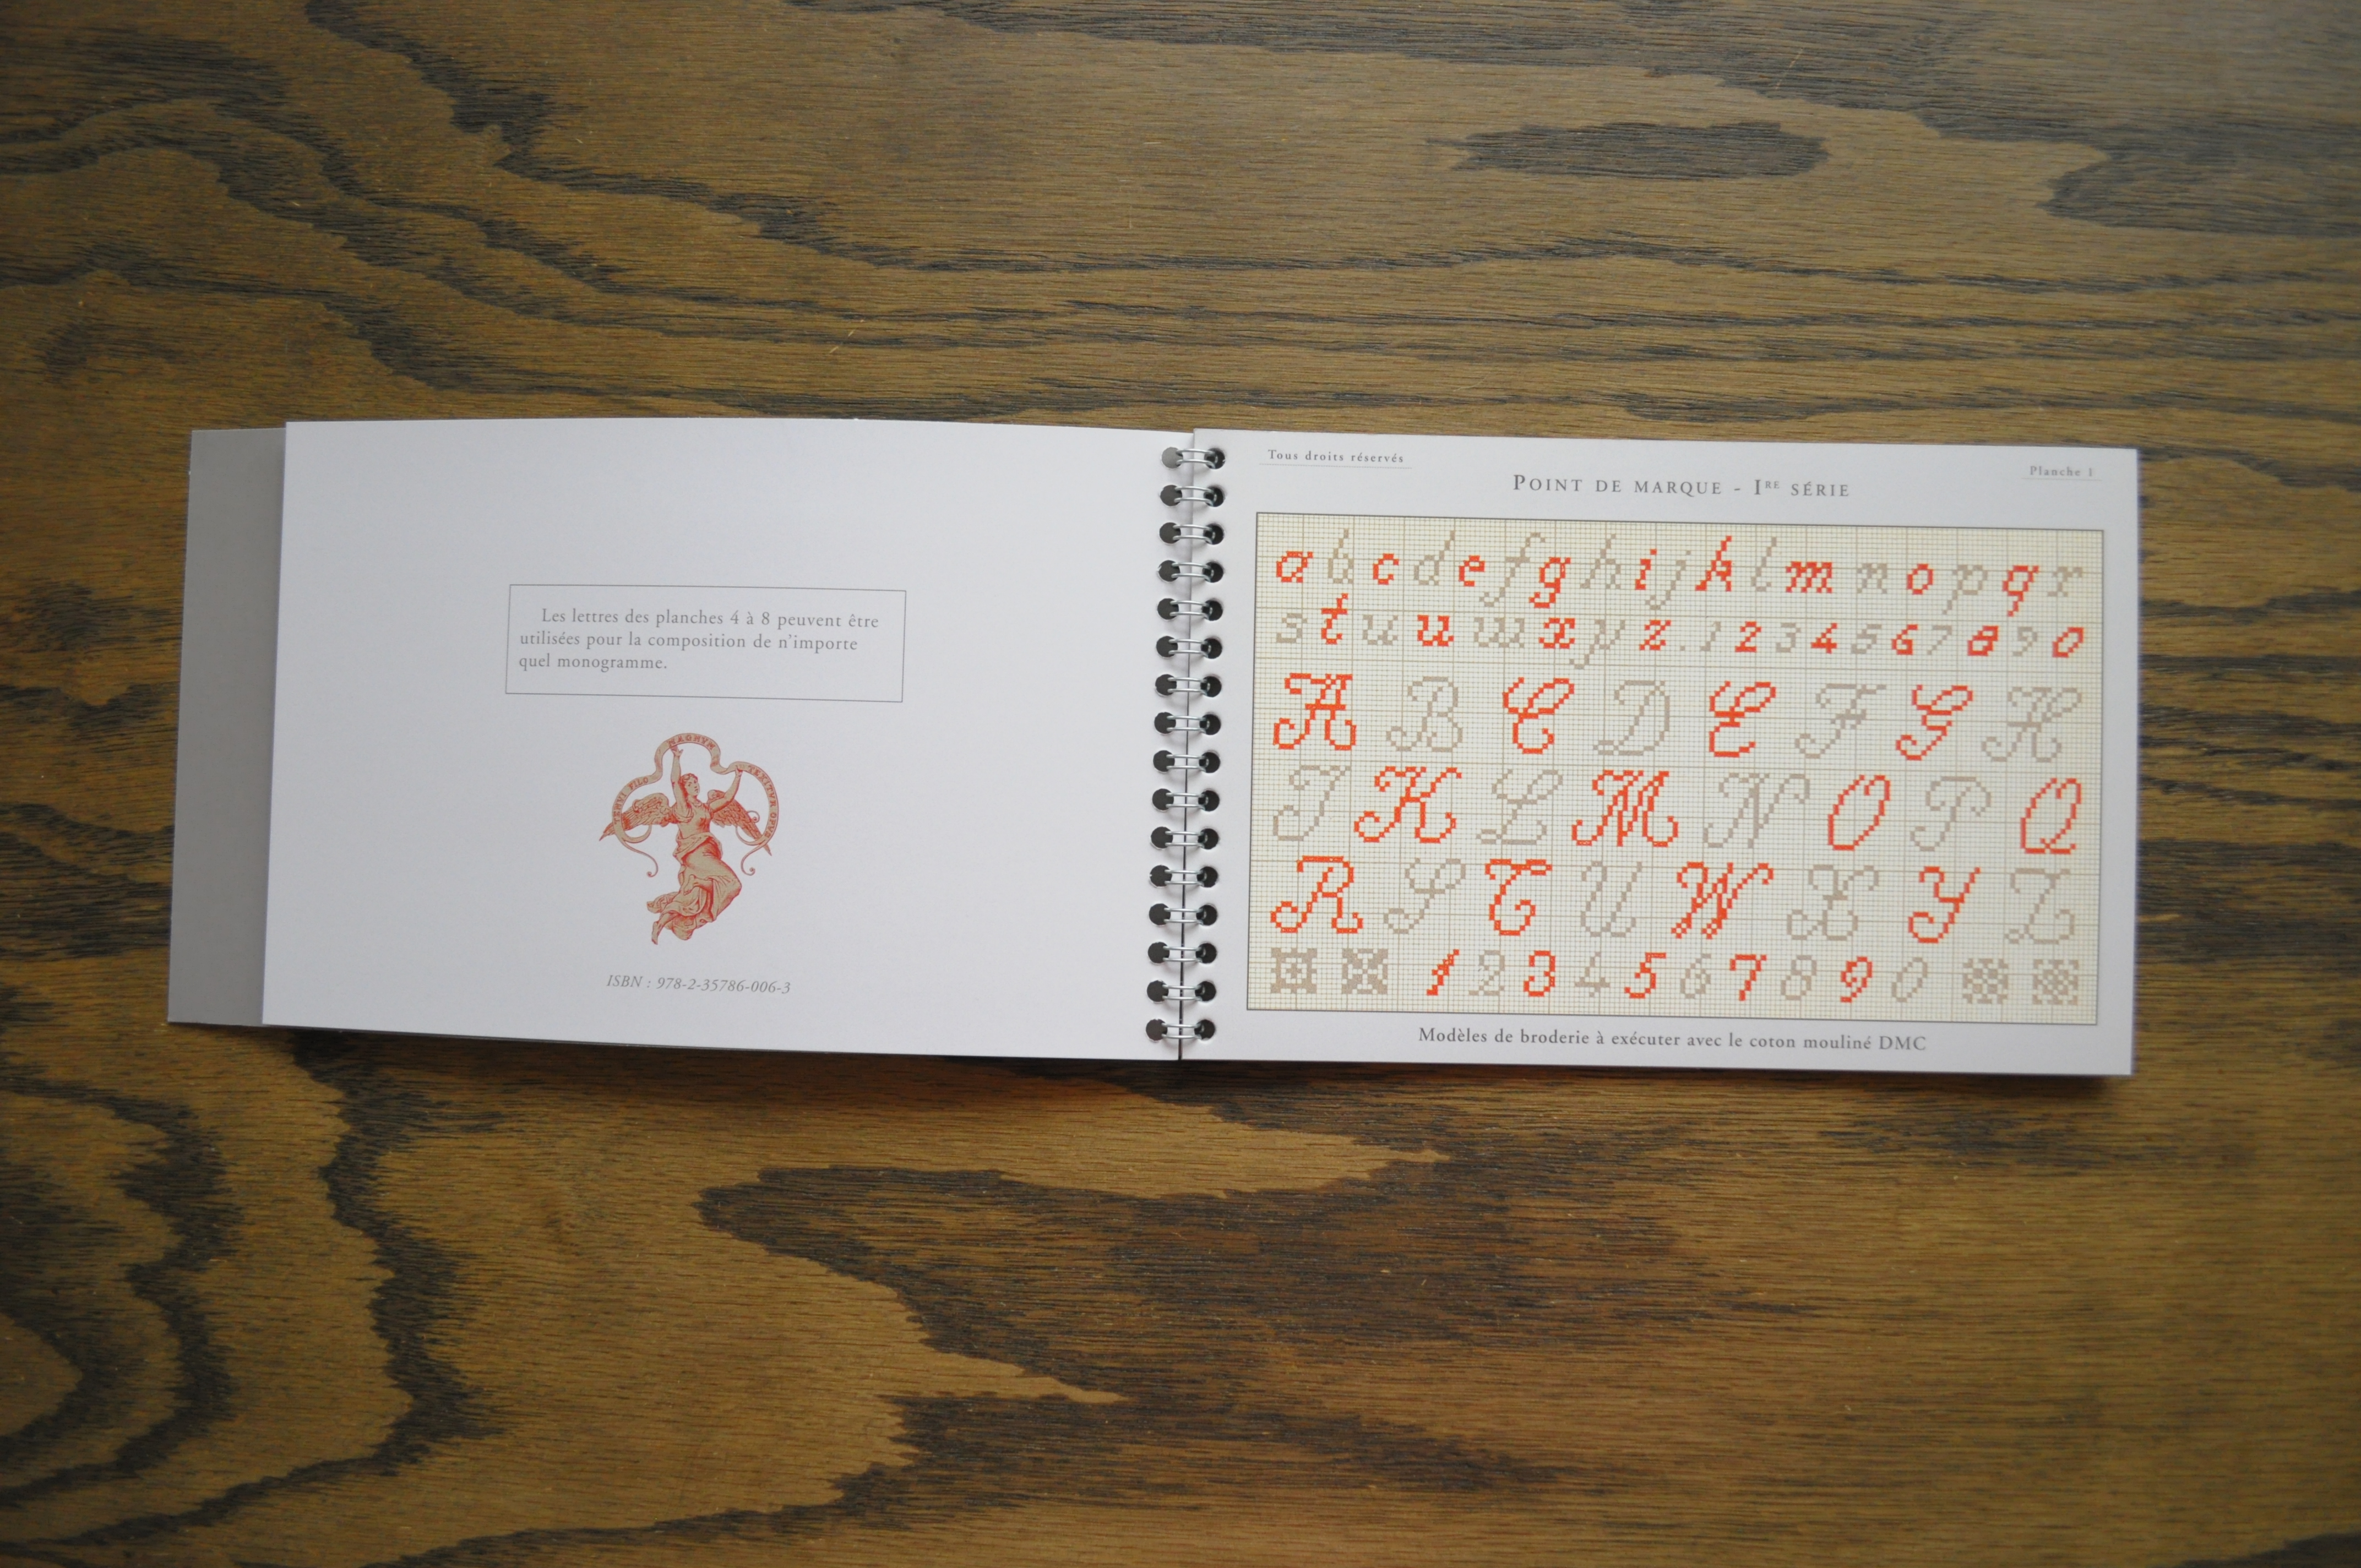 Les lettres des planches 4 à 8 peuvent être
utilisées pour la composition de n'importe
quel monogramme.
TENVI FILO MAGNVM TEXITVR OPVS
ISBN : 978-2-35786-006-3
Tous droits réservés
Planche 1
POINT DE MARQUE - IRE SÉRIE
a b c d e f g h i j k l m n o p q r
s t u u w x y z . 1 2 3 4 5 6 7 8 9 0
A B C D E F G H
I K L M N O P Q
R S T U W X Y Z
1 2 3 4 5 6 7 8 9 0
Modèles de broderie à exécuter avec le coton mouliné DMC